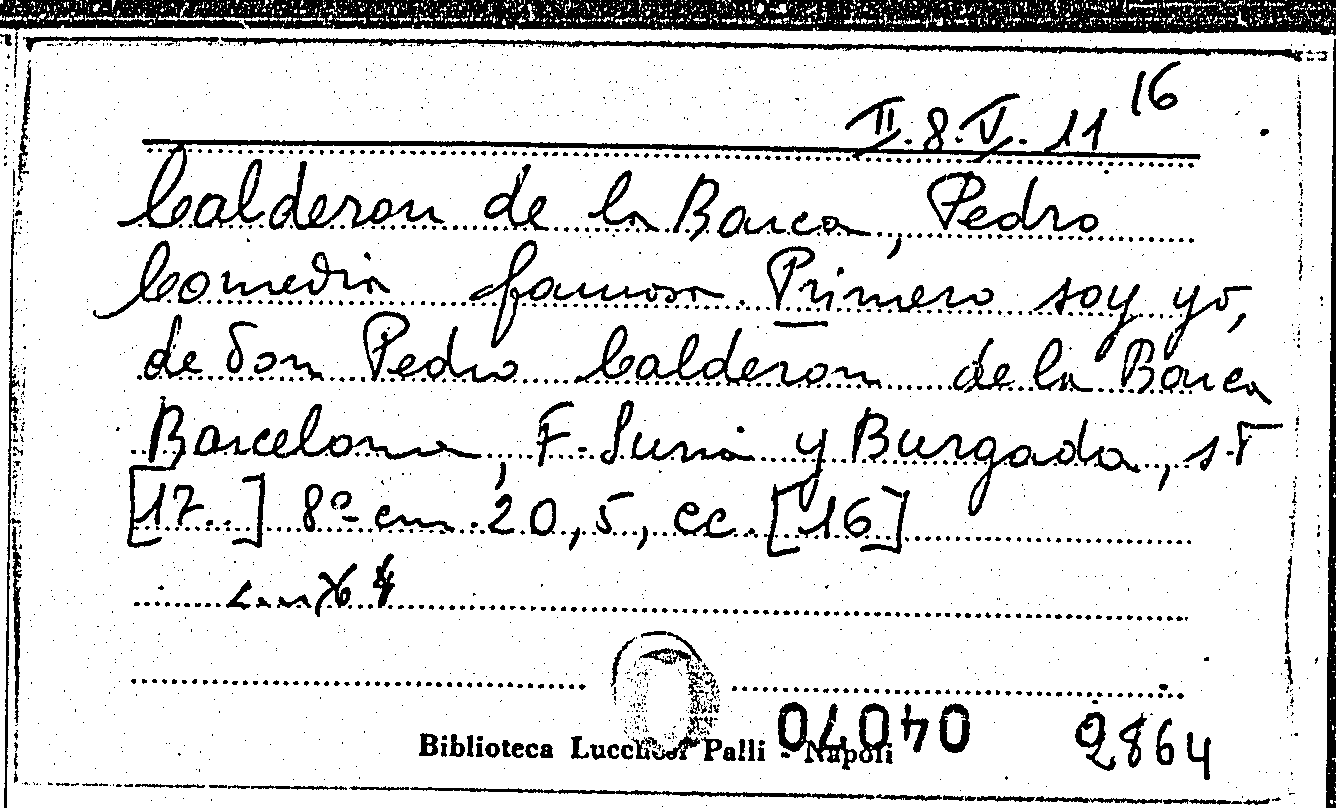 II.8.V.11 16
Calderon de la Barca, Pedro
Comedia famosa. Primero soy yo,
de don Pedro Calderon de la Barca
Barcelona, F. Suria y Burgada, s.T
[17..] 8º cm. 20,5, cc. [16]
Biblioteca Lucchesi Palli - Napoli
04070 2864